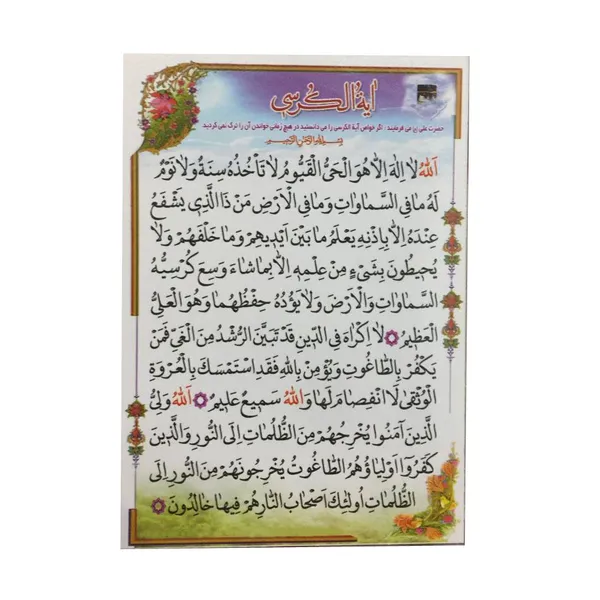 آیة الکرسی
حضرت علی (ع) می فرمایند : اگر خواص آیة الکرسی را می دانستید در هیچ زمانی خواندن آن را ترک نمی کردید
بسم الله الرحمن الرحیم
اَللّٰهُ لا اِلٰهَ اِلاّ هُوَ الْحَیُّ الْقَیُّومُ لا تَأْخُذُهُ سِنَةٌ وَلا نَوْمٌ
لَهُ ما فِی السَّماواتِ وَما فِی الْاَرْضِ مَنْ ذَا الَّذی یَشْفَعُ
عِنْدَهُ اِلاّ بِاِذْنِهِ یَعْلَمُ ما بَیْنَ اَیْدیهِمْ وَما خَلْفَهُمْ وَلا
یُحیطُونَ بِشَیْءٍ مِنْ عِلْمِهِ اِلاّ بِما شاءَ وَسِعَ کُرْسِیُّهُ
السَّماواتِ وَالْاَرْضَ وَلا یَؤُدُهُ حِفْظُهُما وَهُوَ الْعَلِیُّ
الْعَظیمُ لا اِکْراهَ فِی الدّینِ قَدْ تَبَیَّنَ الرُّشْدُ مِنَ الْغَیِّ فَمَنْ
یَکْفُرْ بِالطّاغُوتِ وَیُؤْمِنْ بِاللّٰهِ فَقَدِ اسْتَمْسَکَ بِالْعُرْوَةِ
الْوُثْقیٰ لَا انْفِصامَ لَها وَاللّٰهُ سَمیعٌ عَلیمٌ اَللّٰهُ وَلِیُّ
الَّذینَ آمَنُوا یُخْرِجُهُمْ مِنَ الظُّلُماتِ اِلَی النُّورِ وَالَّذینَ
کَفَرُوا اَوْلِیاؤُهُمُ الطّاغُوتُ یُخْرِجُونَهُمْ مِنَ النُّورِ اِلَی
الظُّلُماتِ اُولٰئِکَ اَصْحابُ النّارِ هُمْ فیها خالِدُونَ